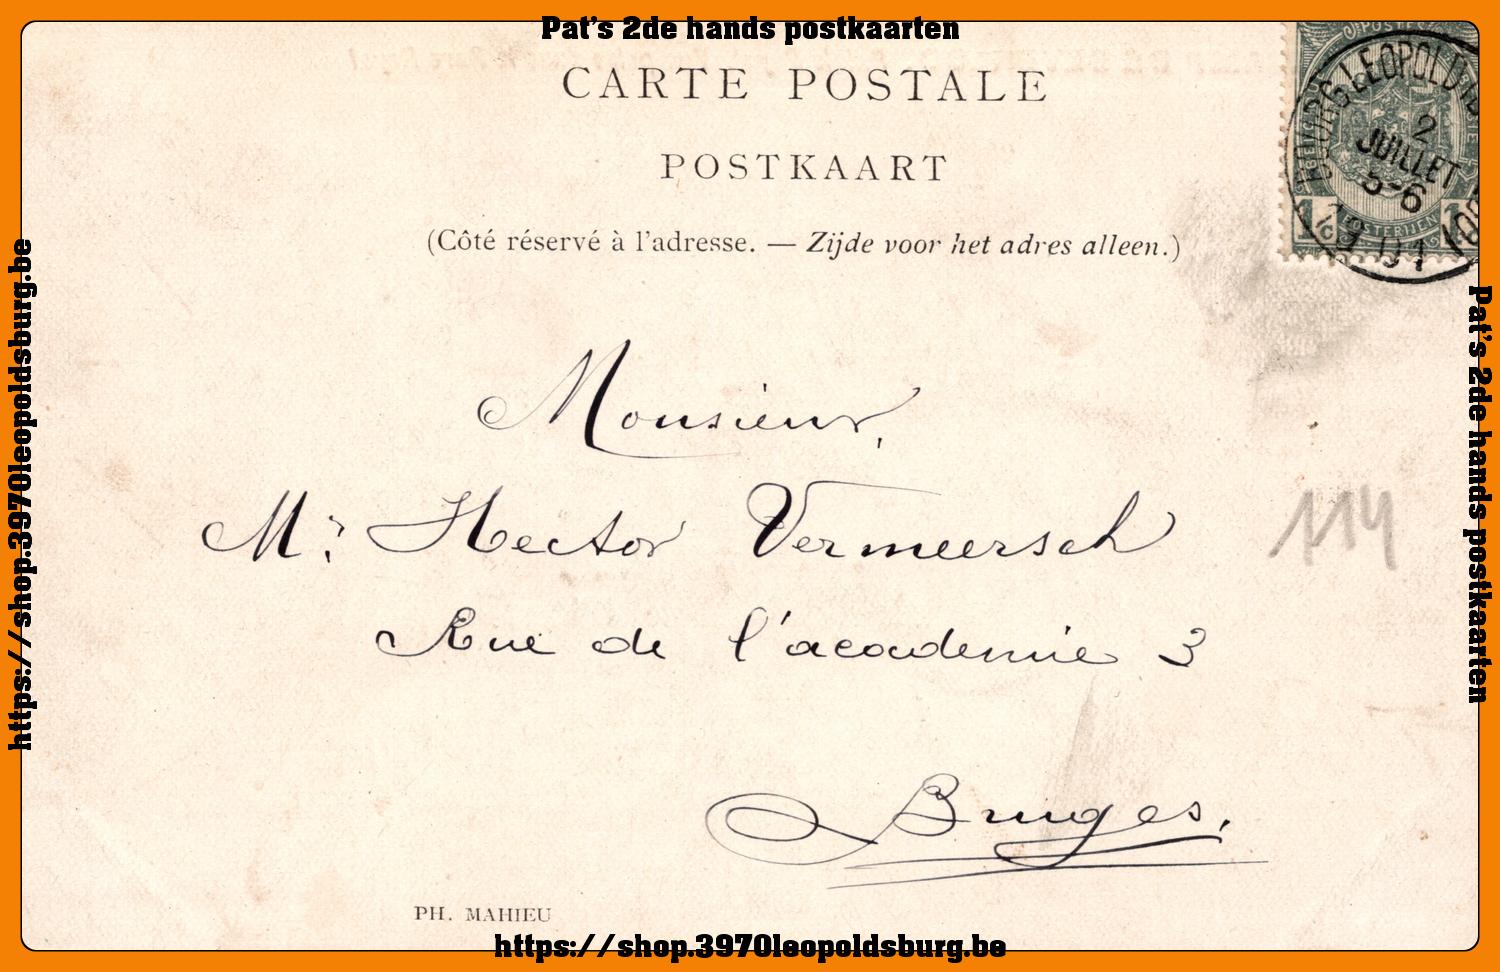 Pat's 2de hands postkaarten
CARTE POSTALE
POSTKAART
(Côté réservé à l'adresse. — Zijde voor het adres alleen.)
BOURG-LEOPOLD
2
JUILLET
5-6
01
POSTES
1
1
Monsieur,
Mr Hector Vermeersch
114
Rue de l'academie 3
Bruges.
PH. MAHIEU
https://shop.3970leopoldsburg.be
https://shop.3970leopoldsburg.be
Pat's 2de hands postkaarten